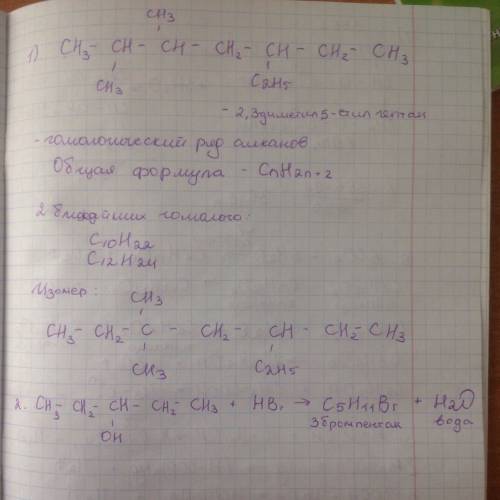 CH₃
1) CH₃ - CH - CH - CH₂ - CH - CH₂ - CH₃
CH₃ C₂H₅
- 2,3диметил5-этил гептан
- гомологический ряд алканов
Общая формула - CnH2n+2
2 ближайших гомолога:
C₁₀H₂₂
C₁₂H₂₄
Изомер:
CH₃
CH₃ - CH₂ - C - CH₂ - CH - CH₂ - CH₃
CH₃ C₂H₅
2. CH₃ - CH₂ - CH - CH₂ - CH₃ + HBr → C₅H₁₁Br + H₂O
OH 3бромпентан вода